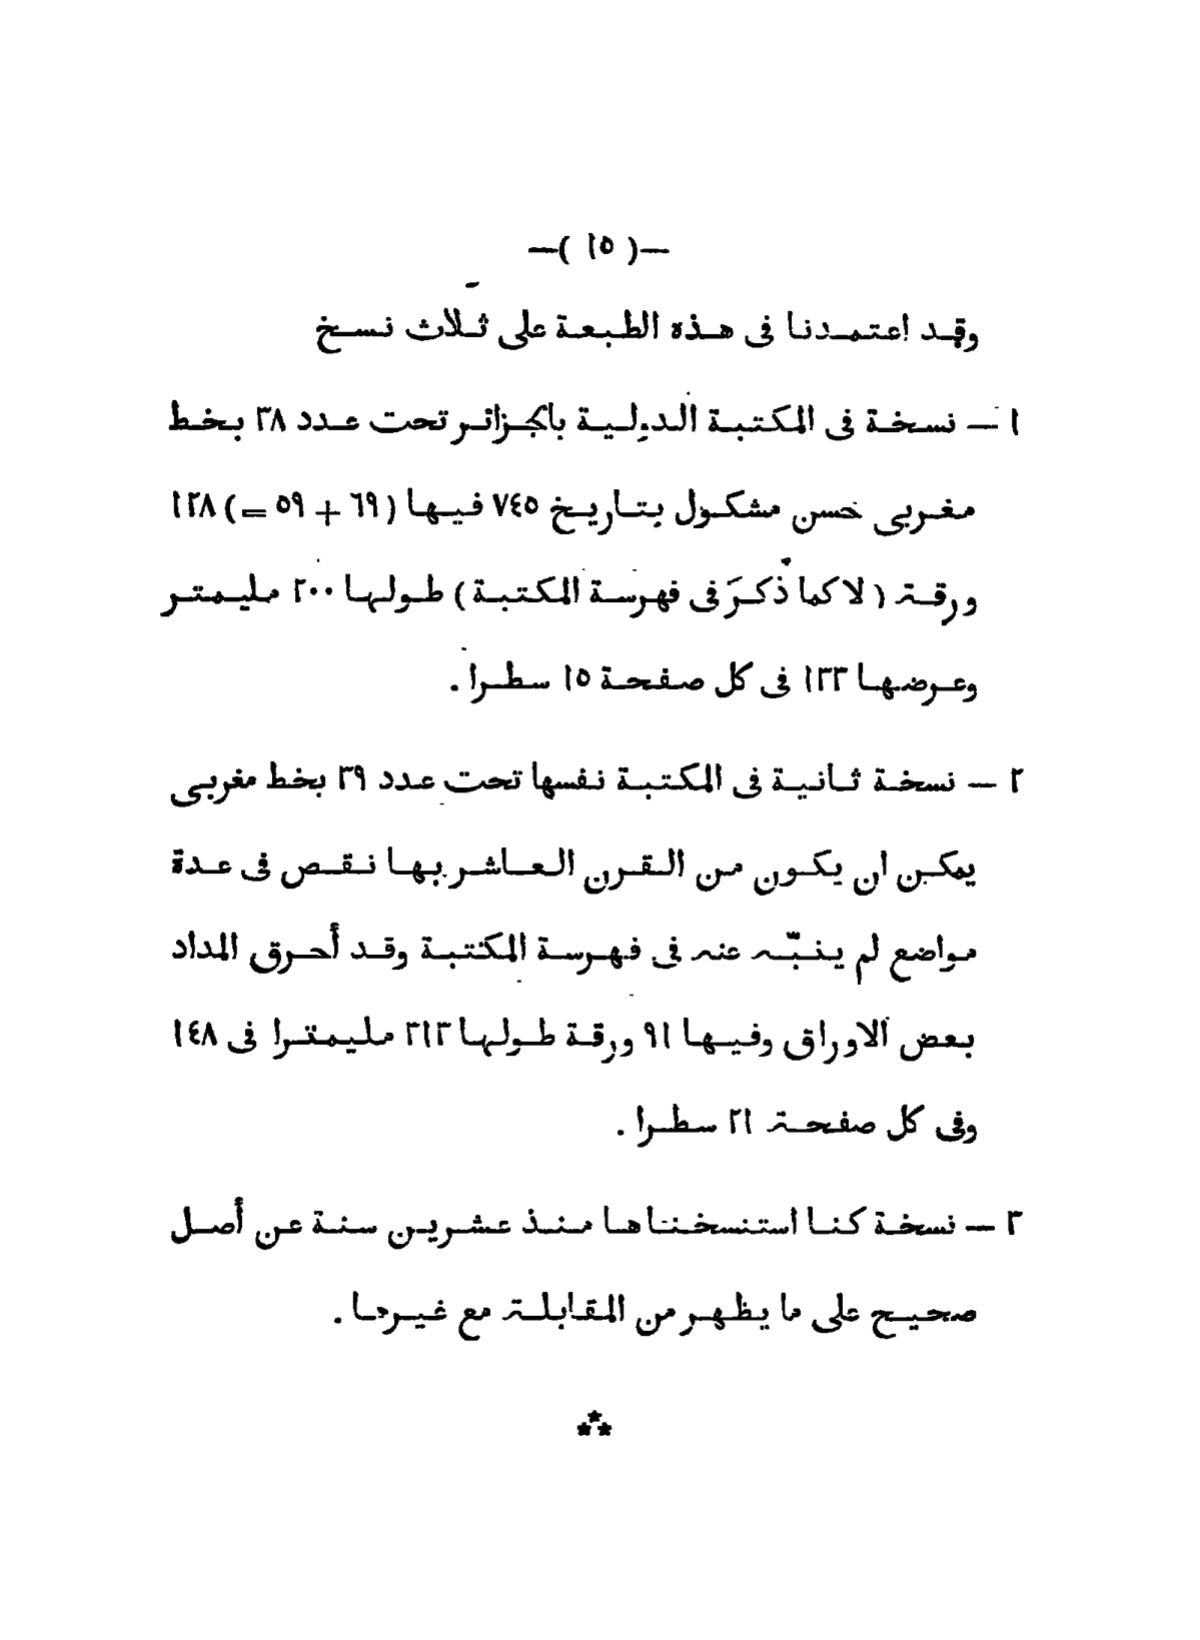 —( ١٥ )—
وقد اعتمدنا فى هذه الطبعة على ثلاث نسخ
١ — نسخة فى المكتبة الدولية بالجزائر تحت عدد ٣٨ بخط
مغربى حسن مشكول بتاريخ ٧٤٥ فيها ( ٦٩ + ٥٩ =) ١٢٨
ورقة ( لا كما ذُكرَ فى فهرسة المكتبة ) طولها ٢٠٠ مليمتر
وعرضها ١٣٣ فى كل صفحة ١٥ سطرا .
٢ — نسخة ثانية فى المكتبة نفسها تحت عدد ٣٩ بخط مغربى
يمكن ان يكون من القرن العاشر بها نقص فى عدة
مواضع لم ينبّه عنه فى فهرسة المكتبة وقد أحرق المداد
بعض الاوراق وفيها ٩١ ورقة طولها ٢١٣ مليمترا فى ١٤٨
وفى كل صفحة ٢١ سطرا .
٣ — نسخة كنا استنسخناها منذ عشرين سنة عن أصل
صحيح على ما يظهر من المقابلة مع غيرها .
⁂